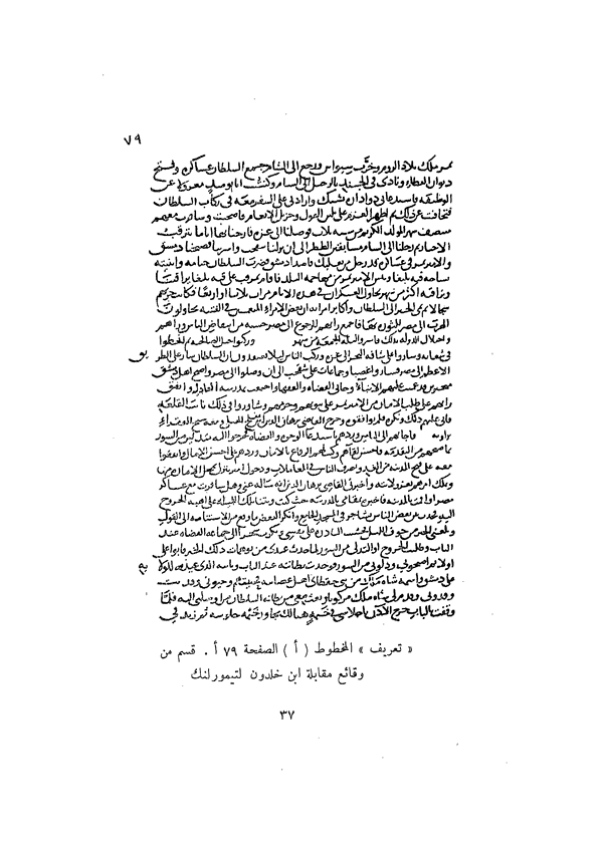 ٧٩
تمر ملك بلاد الروم وخرّب سيواس ورجع الى الشام جمع السلطان عساكره وفتح
ديوان العطاء ونادى في الجند بالرحيل الى الشام وكنت انا يوميذ معزولا عن
الوظيفة فاستدعاني دواداره يشبك وارادني على السفر معه في ركاب السلطان
فتجافيت عن ذلك ثم اظهر العزم علي بلين القول وجزيل الانعام فاصخيت وسافرت معهم
منتصف شهر المولد الكريم من سنة ثلاث فوصلنا الى غزة فارحنا بها اياما نترقب
الاخبار ثم وصلنا الى الشام مسابقين الططر الى ان نزلنا شقحب واسرينا فصبحنا دمشق
والامير تمر في عساكره قد رحل من بعلبك قاصدا دمشق فضرب السلطان خيامه وابنيته
بساحة قبة يلبغا ويئس الامير تمر من مهاجمة البلد فاقام بمرقب على قبة يلبغا يراقبنا
ونراقبه اكثر من شهر تجاول العسكران في هذه الايام مرات ثلاثا او اربعا فكانت حربهم
سجالا ثم نمي الخبر الى السلطان واكابر امرايه ان بعض الامراء المنغمسين في الفتنة يحاولون
الهرب الى مصر للثورة بها فاجمع رايهم للرجوع الى مصر خشية من انتقاض الناس وراءهم
واختلال الدولة بذلك فاسروا ليلة الجمعة من شهر وركبوا جبل الصالحية ثم انحطوا
في شعابه وساروا على شافة البحر الى غزة وركب الناس ليلا يعتقدون ان السلطان سار على الطريق
الاعظم الى مصر فساروا عصبا وجماعات على شقحب الى ان وصلوا الى مصر واصبح اهل دمشق
متحيرين قد عميت عليهم الانباء وجاءني القضاة والفقهاء واجتمعت بمدرسة العادلية واتفق
رايهم على طلب الامان من الامير تمر على بيوتهم وحرمهم وشاوروا في ذلك نائب القلعة
فابى عليهم ذلك ونكره فلم يوافقوه وخرج القاضي برهان الدين الحنبلي ومعه شيخ الفقراء
بزاوية فاجابهم الى التامين وردهم باستدعاء الوجوه والقضاة فخرجوا اليه متدلين من السور
بما صحبهم من التقدمة فاحسن لقاءهم وكتب لهم الرقاع بالامان وردهم على احسن الامال واتفقوا
معه على فتح المدينة من الغد وتصرف الناس في المعاملات ودخول امير ينزل بمحل الامارة منها
ويملك امرهم بعز ولايته واخبرني القاضي برهان الدين انه ساله عني وهل سافرت مع عساكر
مصر او اقمت بالمدينة فاخبره بمقامي بالمدرسة حيث كنت وبتنا تلك الليلة على اهبة الخروج
اليه فحدث بين بعض الناس تشاجر في المسجد الجامع وانكر البعض ما وقع من الاستنامة الى القول
وبلغني الخبر من جوف الليل فخشيت البادرة على نفسي وبكرت سحرا الى جماعة القضاة عند
الباب وطلبت الخروج او التدلي من السور لما حدث عندي من توهمات ذلك الخبر فابوا علي
اولا ثم اصخوا لي ودلوني من السور فوجدت بطانته عند الباب ونايبه الذي عينه للولاية
على دمشق واسمه شاه ملك من بني جقطاي اهل عصابته فحييتهم وحيوني وفديت
وفدوني وقدم لي شاه ملك مركوبا وبعث معي من بطانة السلطان من اوصلني اليه فلما
وقفت بالباب خرج الاذن باجلاسي في خيمة هنالك تجاور خيمة جلوسه ثم زيد في
« تعريف » المخطوط ( أ ) الصفحة ٧٩ أ . قسم من
وقائع مقابلة ابن خلدون لتيمورلنك
٣٧